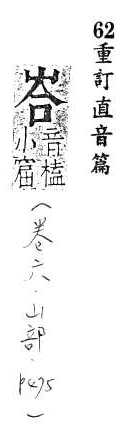 62重訂直音篇
峇
音榼
小窟
（卷六·山部·p475）